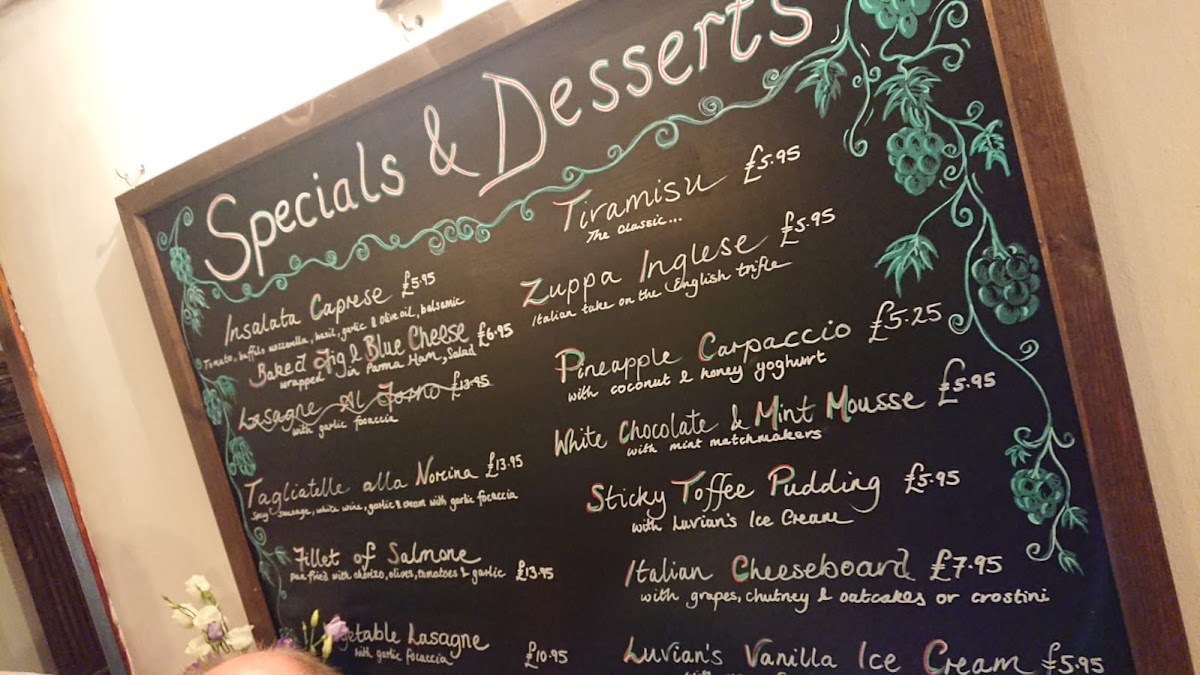 Specials & Desserts
Insalata Caprese £5.95
Tomato, buffalo mozzarella, basil, garlic & olive oil, balsamic
Baked Fig & Blue Cheese £6.95
wrapped in Parma Ham, Salad
Lasagne Al Forno £13.95
with garlic focaccia
Tagliatelle alla Norcina £13.95
sausage, white wine, garlic & cream with garlic focaccia
Fillet of Salmone
pan fried with chorizo, olives, tomatoes & garlic £13.95
getable Lasagne
with garlic focaccia £10.95
Tiramisu £5.95
The classic...
Zuppa Inglese £5.95
Italian take on the English trifle
Pineapple Carpaccio £5.25
with coconut & honey yoghurt
White Chocolate & Mint Mousse £5.95
with mint matchmakers
Sticky Toffee Pudding £5.95
with Luvian's Ice Cream
Italian Cheeseboard £7.95
with grapes, chutney & oatcakes or crostini
Luvian's Vanilla Ice Cream £5.95